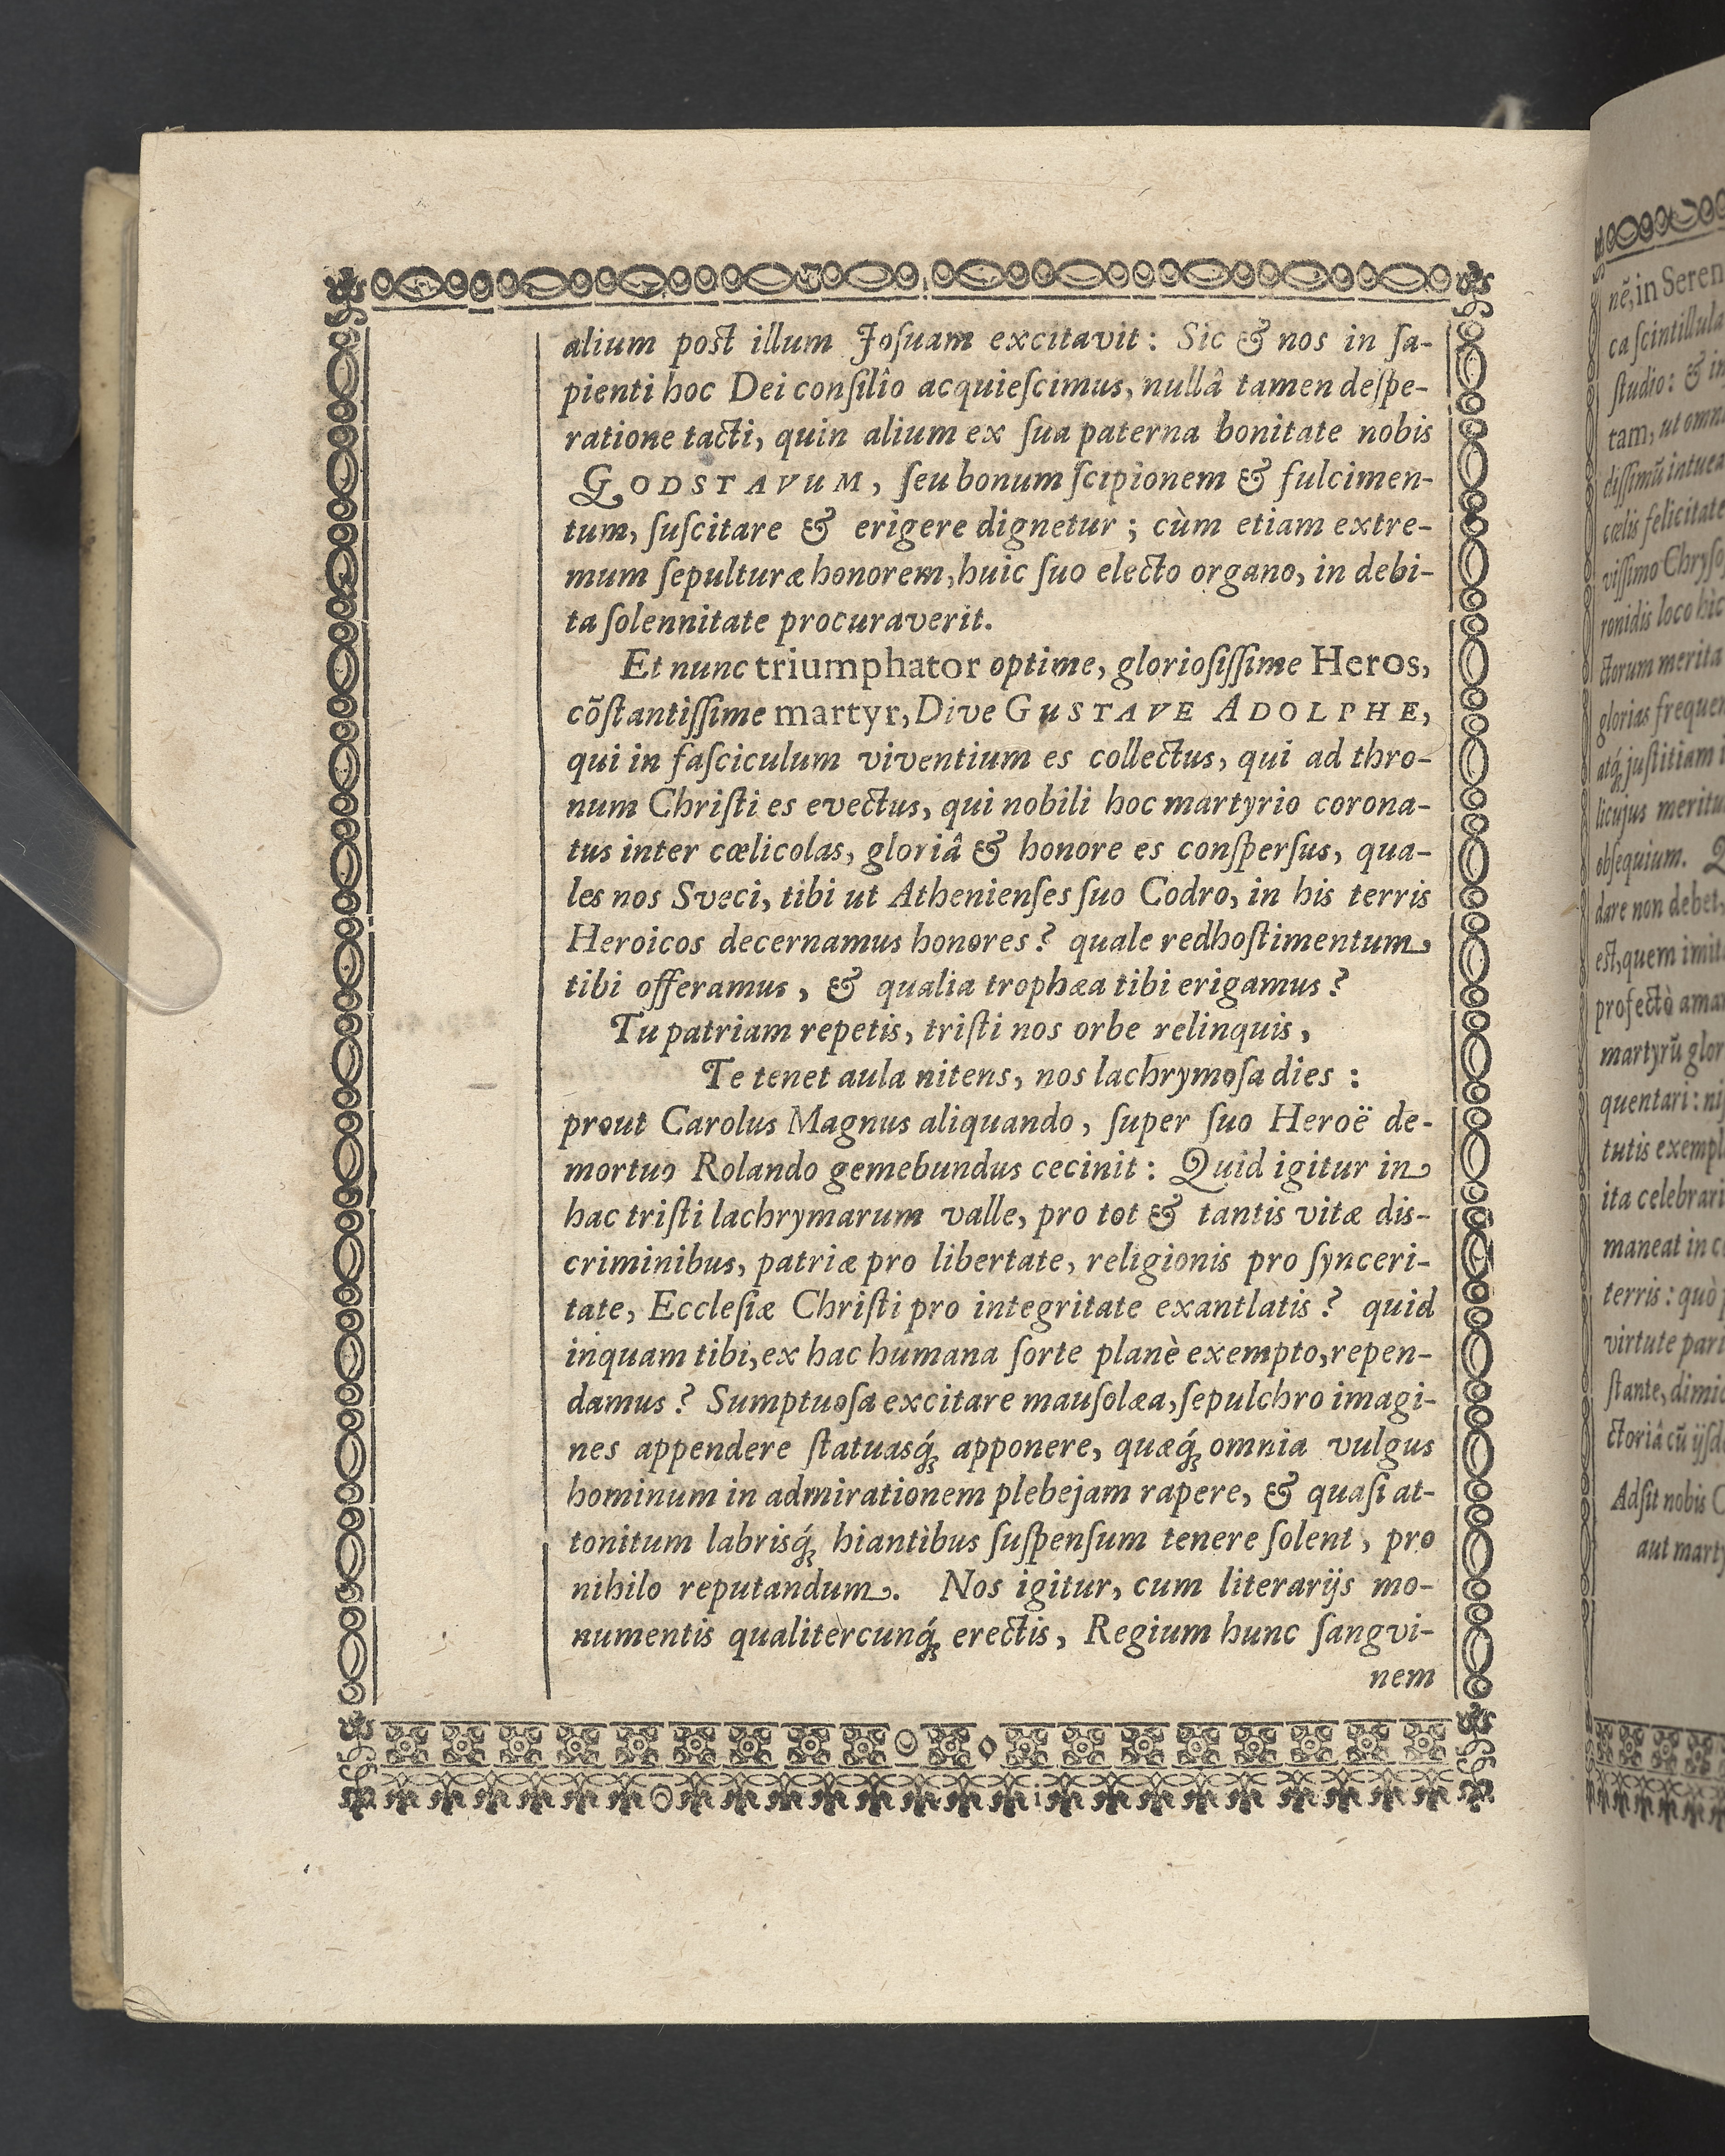 alium post illum Joſuam excitavit: Sic & nos in ſa-
pienti hoc Dei conſilîo acquieſcimus, nullâ tamen deſpe-
ratione tacti, quin alium ex ſua paterna bonitate nobis
GODSTAVUM, ſeu bonum ſcipionem & fulcimen-
tum, ſuſcitare & erigere dignetur; cùm etiam extre-
mum ſepulturæ honorem, huic ſuo electo organo, in debi-
ta ſolennitate procuraverit.
Et nunc triumphator optime, glorioſiſſime Heros,
cõſtantiſſime martyr, Dive GUSTAVE ADOLPHE,
qui in faſciculum viventium es collectus, qui ad thro-
num Chriſti es evectus, qui nobili hoc martyrio corona-
tus inter cœlicolas, gloriâ & honore es conſperſus, qua-
les nos Sveci, tibi ut Athenienſes ſuo Codro, in his terris
Heroicos decernamus honores? quale redhoſtimentum
tibi offeramus, & qualia trophæa tibi erigamus?
Tu patriam repetis, triſti nos orbe relinquis,
Te tenet aula nitens, nos lachrymoſa dies:
prout Carolus Magnus aliquando, ſuper ſuo Heroë de-
mortuo Rolando gemebundus cecinit: Quid igitur in
hac triſti lachrymarum valle, pro tot & tantis vitæ dis-
criminibus, patriæ pro libertate, religionis pro ſynceri-
tate, Eccleſiæ Chriſti pro integritate exantlatis? quid
inquam tibi, ex hac humana ſorte planè exempto, repen-
damus? Sumptuoſa excitare mauſolæa, ſepulchro imagi-
nes appendere ſtatuasq́; apponere, quæq́; omnia vulgus
hominum in admirationem plebejam rapere, & quaſi at-
tonitum labrisq́; hiantibus ſuſpenſum tenere ſolent, pro
nihilo reputandum. Nos igitur, cum literarijs mo-
numentis qualitercunq́; erectis, Regium hunc ſangvi-
nem
nẽ, in Seren
ca ſcintillula
ſtudio: & in
tam, ut omn
diſſimũ intuea
cœlis felicitate
viſſimo Chryſo
ronidis loco hìc
ctorum merita
glorias frequen
atq́; juſtitiam
licujus meritu
obſequium.
dare non debet,
eſt, quem imit
profectò ama
martyrũ glor
quentari: ni
tutis exempl
ita celebrari
maneat in c
terris: quò
virtute pari
ſtante, dimic
ctoriâ cũ ijſd
Adſit nobis
aut marty